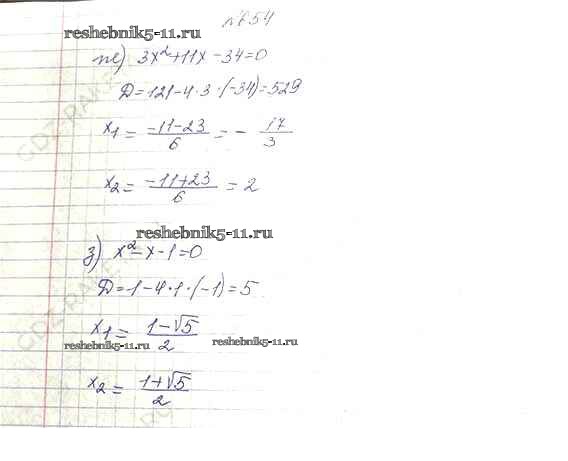 №654
reshebnik5-11.ru
ж) 3x²+11x-34=0
D=121-4·3·(-34)=529
x₁= (-11-23)/6 = - 17/3
x₂= (-11+23)/6 = 2
reshebnik5-11.ru
з) x²-x-1=0
D=1-4·1·(-1)=5
x₁= (1-√5)/2
reshebnik5-11.ru reshebnik5-11.ru
x₂= (1+√5)/2